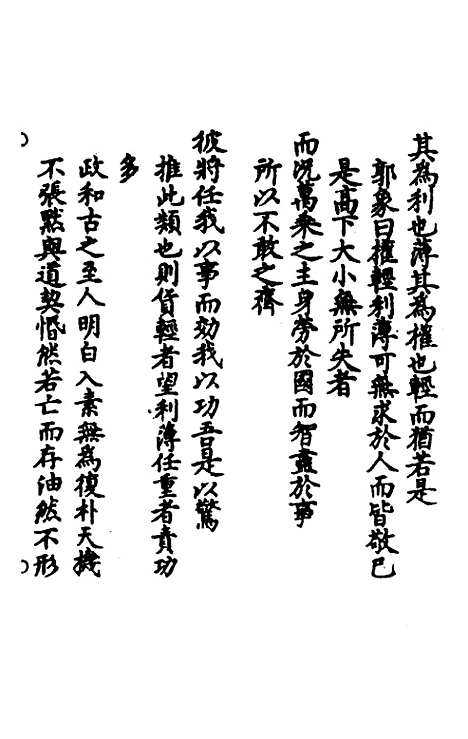 其為利也薄其為權也輕而猶若是
郭象曰權輕利薄可無求於人而皆敬己
是高下大小無所失者
而況萬乘之主身勞於國而智盡於事
所以不敢之齊
彼將任我以事而効我以功吾是以驚
推此類也則貨輕者望利薄任重者責功
多
政和古之至人明白入素無為復朴天機
不張黙與道契惛然若亡而存油然不形